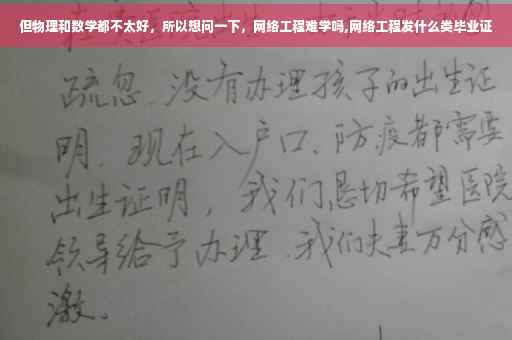 但物理和数学都不太好，所以想问一下，网络工程难学吗,网络工程发什么类毕业证
疏忽、没有办理孩子的出生证
明、现在入户口、防疫都需要
出生证明，我们恳切希望医院
领导给予办理、我们夫妻万分感
激。